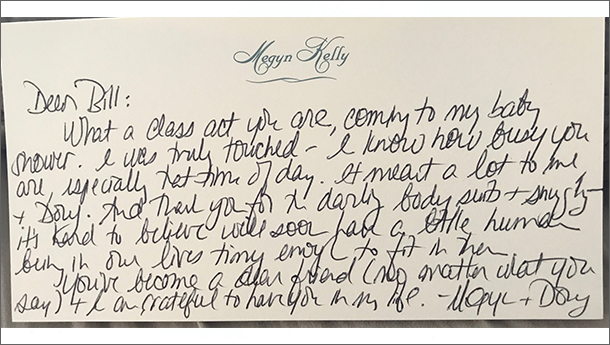 Megyn Kelly
Dear Bill:
What a class act you are, coming to my baby
shower. I was truly touched - I know how busy you
are, especially that time of day. It meant a lot to me
+ Doug. And thank you for the darling body suits + snuggly -
it's hard to believe we'll soon have a little human
being in our lives tiny enough to fit in her.
You've become a dear friend (no matter what you
say) + I am grateful to have you in my life. - Megyn + Doug